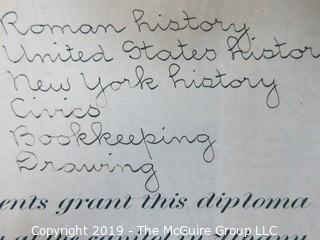 Roman history
United States histor
New York history
Civics
Bookkeeping
Drawing
ents grant this diploma
at the capitol in Albany
Copyright 2019 - The McGuire Group LLC